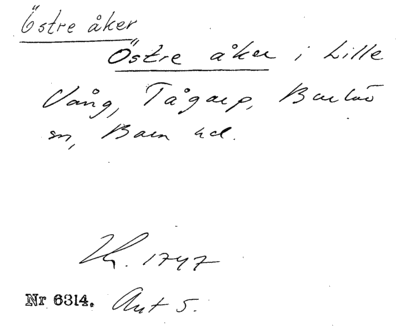 Östre åker
Östre åker i Lille
Vång, Tågarp, Barkåkra
sn, Bara hd.
1747
Nr 6314. Akt 5.